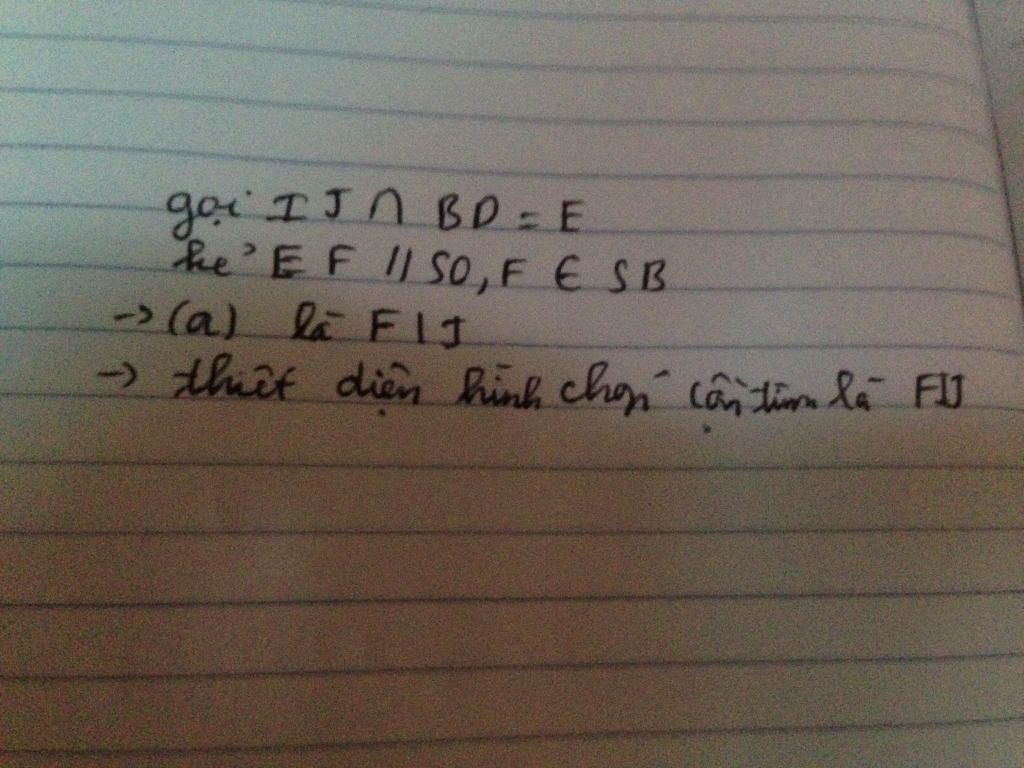 gọi IJ ∩ BD = E
kẻ EF // SO, F ∈ SB
→ (a) là FIJ
→ thiết diện hình chóp cần tìm là FIJ